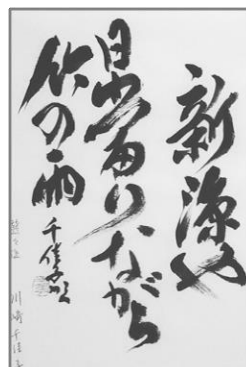 新涼や
日當りながら
竹の雨
千佳子